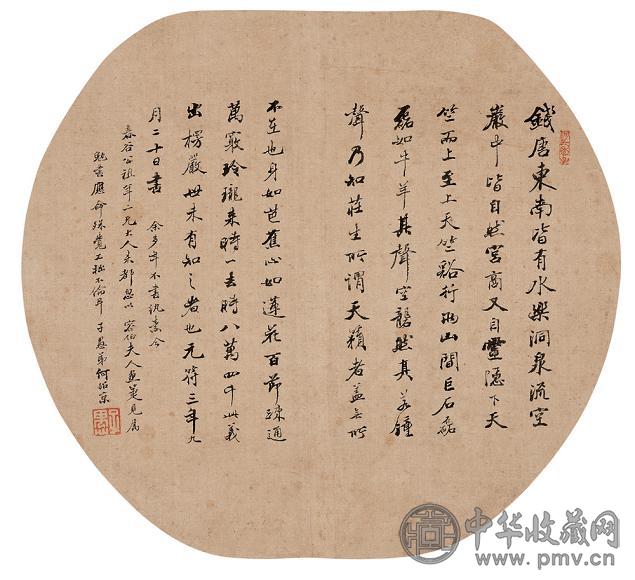 錢唐東南皆有水樂洞泉流空
巖中皆自然宮商又自靈隱下天
竺而上至上天竺谿行兩山間巨石磊
磊如牛羊其聲空礱然真若鍾
聲乃知莊生所謂天籟者蓋無所
不在也身如芭蕉心如蓮花百節疎通
萬竅玲瓏來時一去時八萬四千此義
出楞嚴世未有知之者也元符三年九
月二十日書 余多年不書紈素今
春谷公祖年二兄大人來都忽以 容伯夫人畫箑見屬
勉書應命殊覺工拙不倫耳 子 弟何紹京
中华收藏网
www.pmv.cn